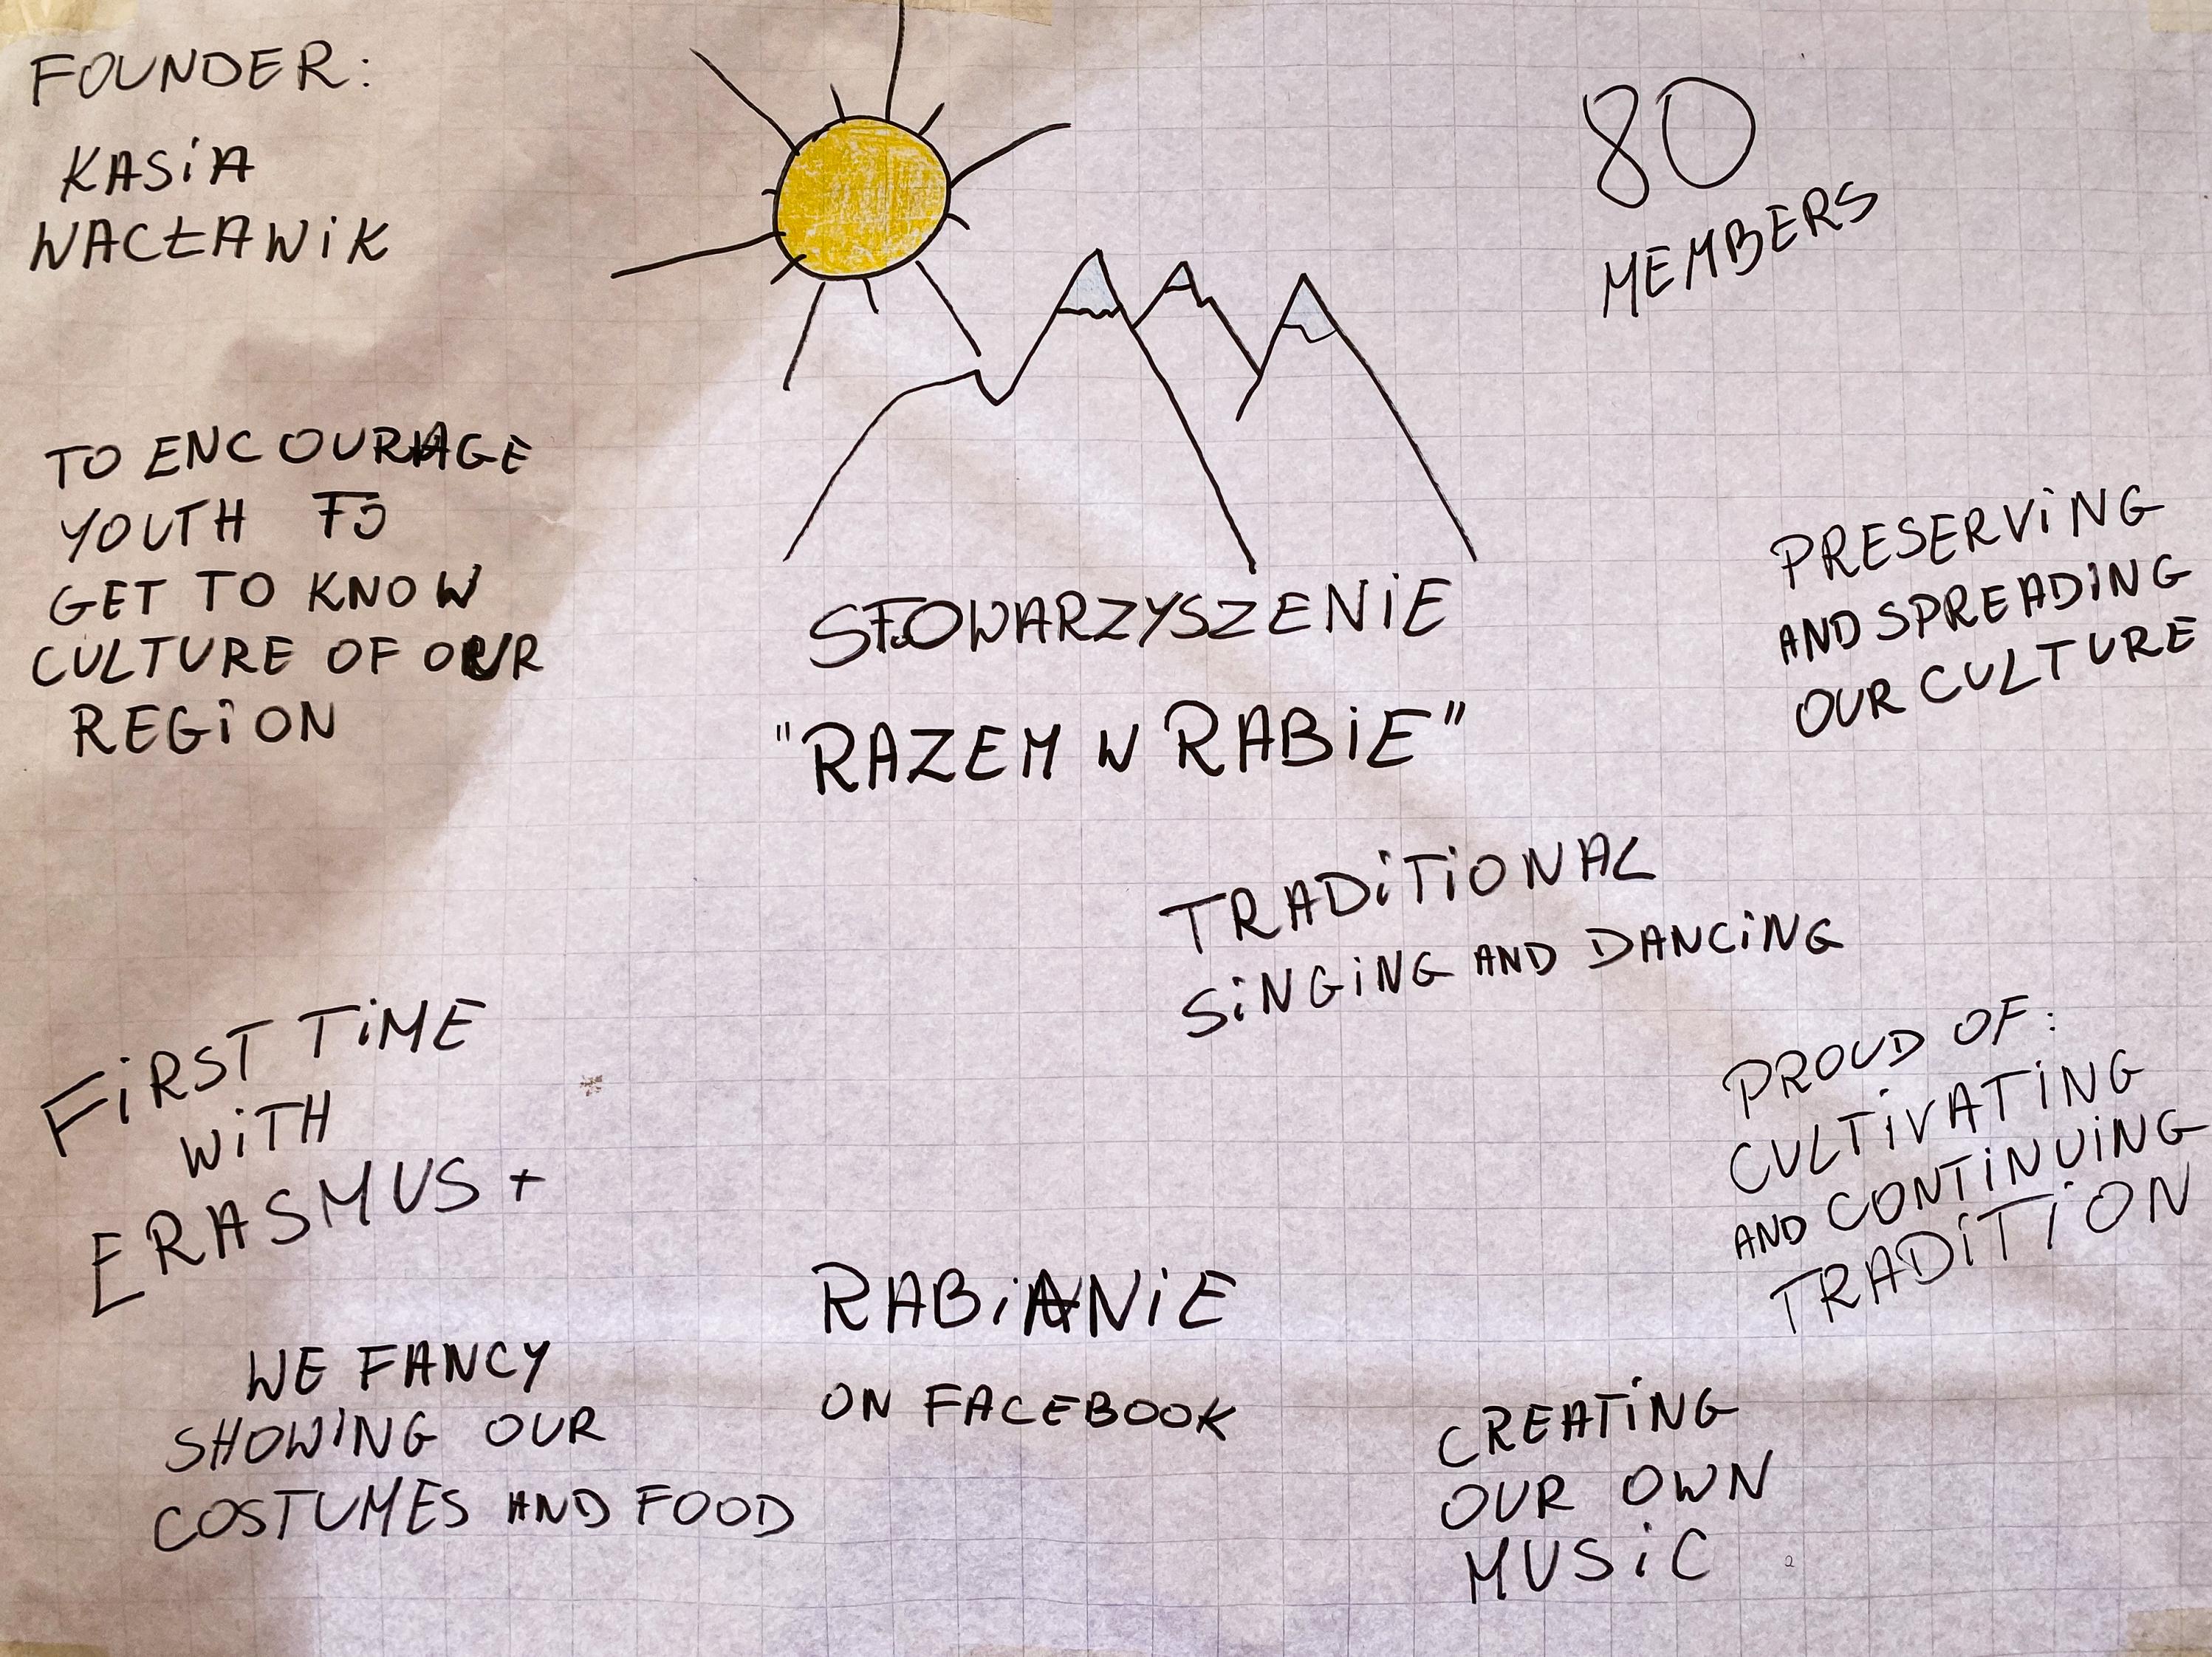 FOUNDER:
KASiA
WACŁAWiK
80
MEMBERS
TO ENCOURAGE
YOUTH TO
GET TO KNOW
CULTURE OF OUR
REGiON
STOWARZYSZENiE
"RAZEM W RABiE"
PRESERViNG
AND SPREADiNG
OUR CULTURE
TRADiTiONAL
SiNGiNG AND DANCiNG
FiRST TiME
WiTH
ERASMUS +
PROUD OF:
CULTiVATiNG
AND CONTiNUiNG
TRADiTiON
RABiANiE
ON FACEBOOK
WE FANCY
SHOWING OUR
COSTUMES AND FOOD
CREATiNG
OUR OWN
MUSiC